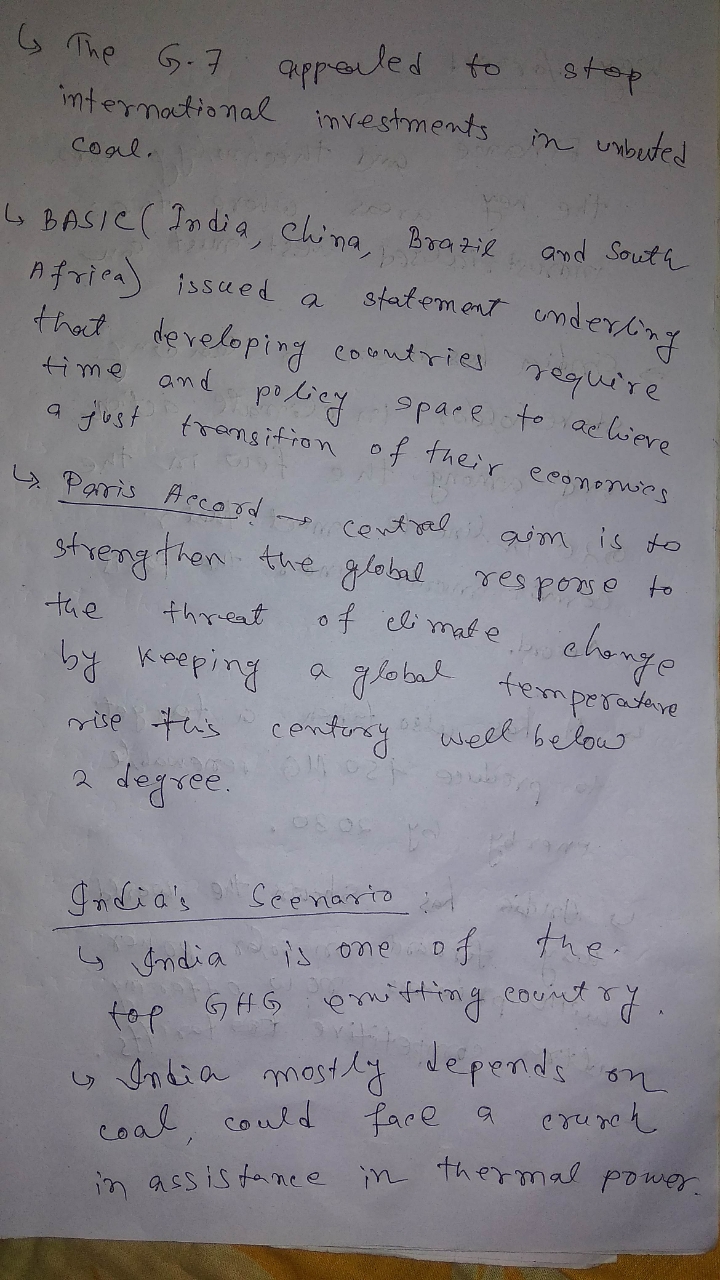 ↳ The G-7 appealed to stop
international investments in unbuted
coal.
↳ BASIC (India, China, Brazil and South
Africa) issued a statement underling
that developing countries require
time and policy space to achieve
a just transition of their economies
↳ Paris Accord → central aim is to
strengthen the global response to
the threat of climate change
by keeping a global temperature
rise this century well below
2 degree.
India's Scenario :
↳ India is one of the
top GHG emitting country.
↳ India mostly depends on
coal, could face a crunch
in assistance in thermal power.